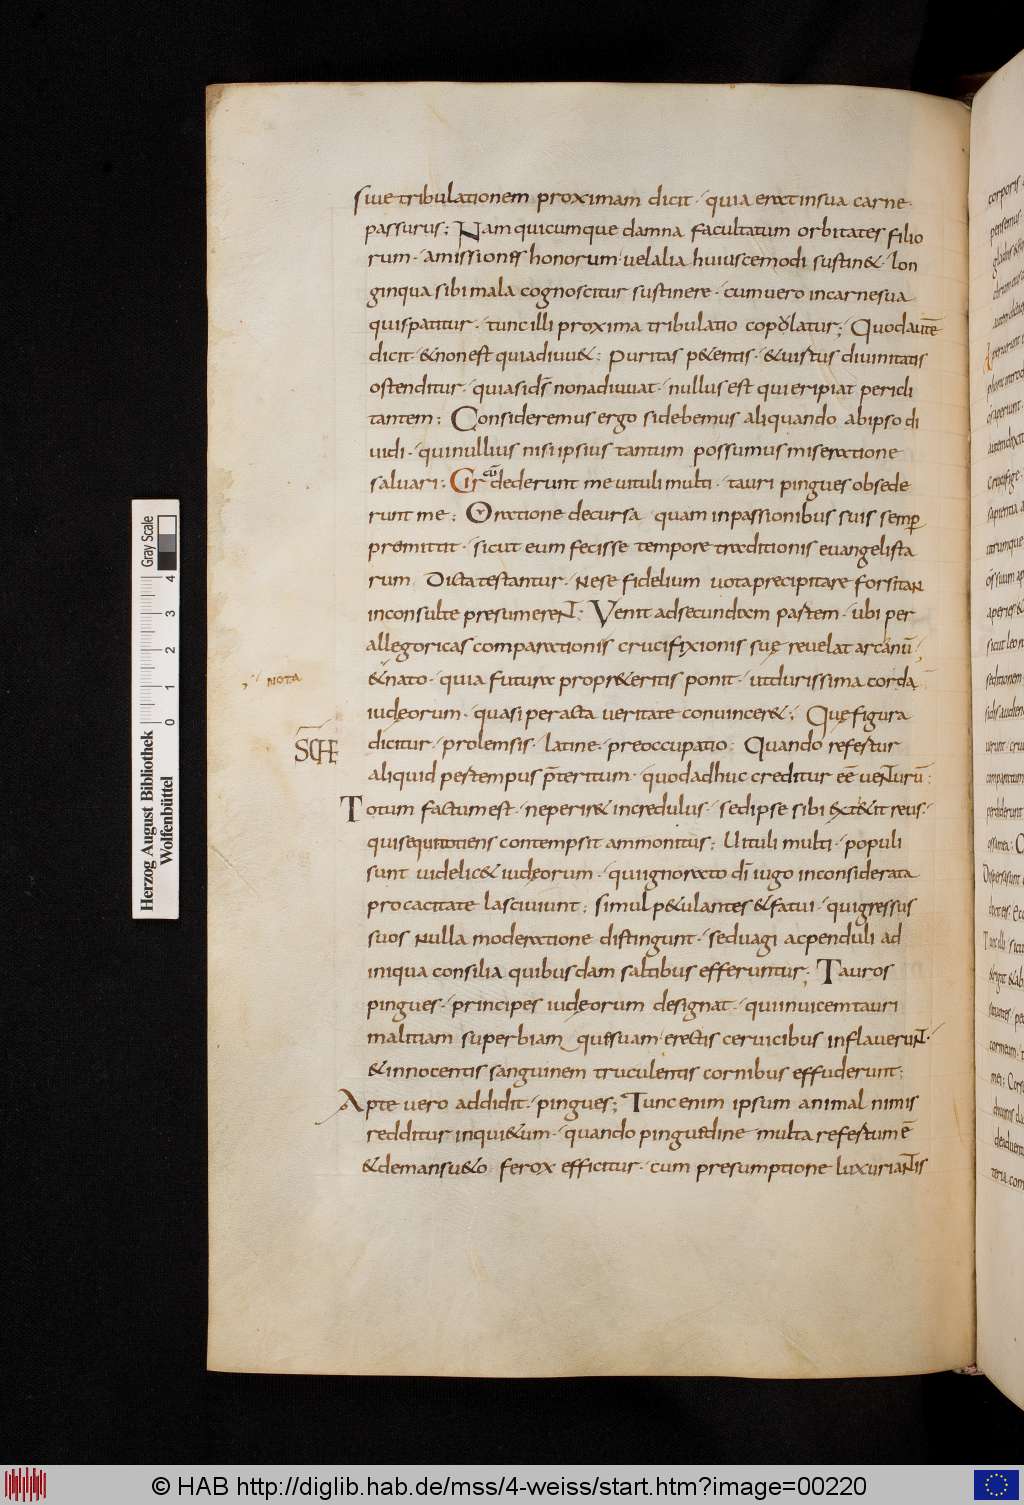 siue tribulationem proximam dicit · quia erat insua carne ·
passurus ; Nam quicumque damna facultatum orbitates filio
rum · amissiones honorum · uel alia huiuscemodi sustin& · lon
ginqua sibi mala cognoscitur sustinere · cum uero in carne sua
quis patitur · tunc illi proxima tribulatio copolatur ; Quod autē
dicit · & non est qui adiuu& ; Puritas p&entis · & uirtus diuinitatis
ostenditur · quia si dš non adiuuat · nullus est qui eripiat pericli
tantem ; Consideremus ergo si debemus aliquando ab ipso di
uidi · qui nullius nisi ipsius tantum possumus miseratione
saluari ; Circūdederunt me uituli multi · tauri pingues obsede
runt me ; Oratione decursa quam in passionibus suis semper
promittit · sicut eum fecisse tempore traditionis euangelista
rum Dicta testantur · Ne se fidelium uota precipitare forsitan
inconsulte presumerent · Venit ad secundam partem · ubi per
allegoricas comparationis crucifixionis suę reuelat arcanū ;
& nato · quia futura propr&eritis ponit · ut durissima corda
iudęorum · quasi peracta ueritate conuincer& ; Quę figura
dicitur · prolemsis · latine · preoccupatio ; Quando refertur
aliquid per tempus p̄teritum · quod adhuc creditur eē uenturū ;
Totum factum est · ne perir& incredulus · sed ipse sibi extitit reus ·
qui sequi totiens contempsit ammonitus ; Uituli multi · populi
sunt uidelic& iudęorum · qui ignorato dī iugo inconsiderata
procacitate lasciuiunt ; simul p&ulantes & fatui · qui gressus
suos nulla moderatione distingunt · sed uagi ac penduli ad
iniqua consilia quibusdam saltibus efferuntur ; Tauros
pingues · principes iudęorum designat · qui in uicem tauri
malitiam superbiam quę suam · erectis ceruicibus inflauerunt ·
& innocentis sanguinem truculentis cornibus effuderunt ;
Apte uero addidit · pingues ; Tunc enim ipsum animal nimis
redditur inqui&um · quando pinguedine multa refertum ē
& demansu&o ferox efficitur · cum presumptione luxuriantis
NOTA
SCHE
Herzog August Bibliothek
Wolfenbüttel
Gray Scale
0 1 2 3 4
© HAB http://diglib.hab.de/mss/4-weiss/start.htm?image=00220